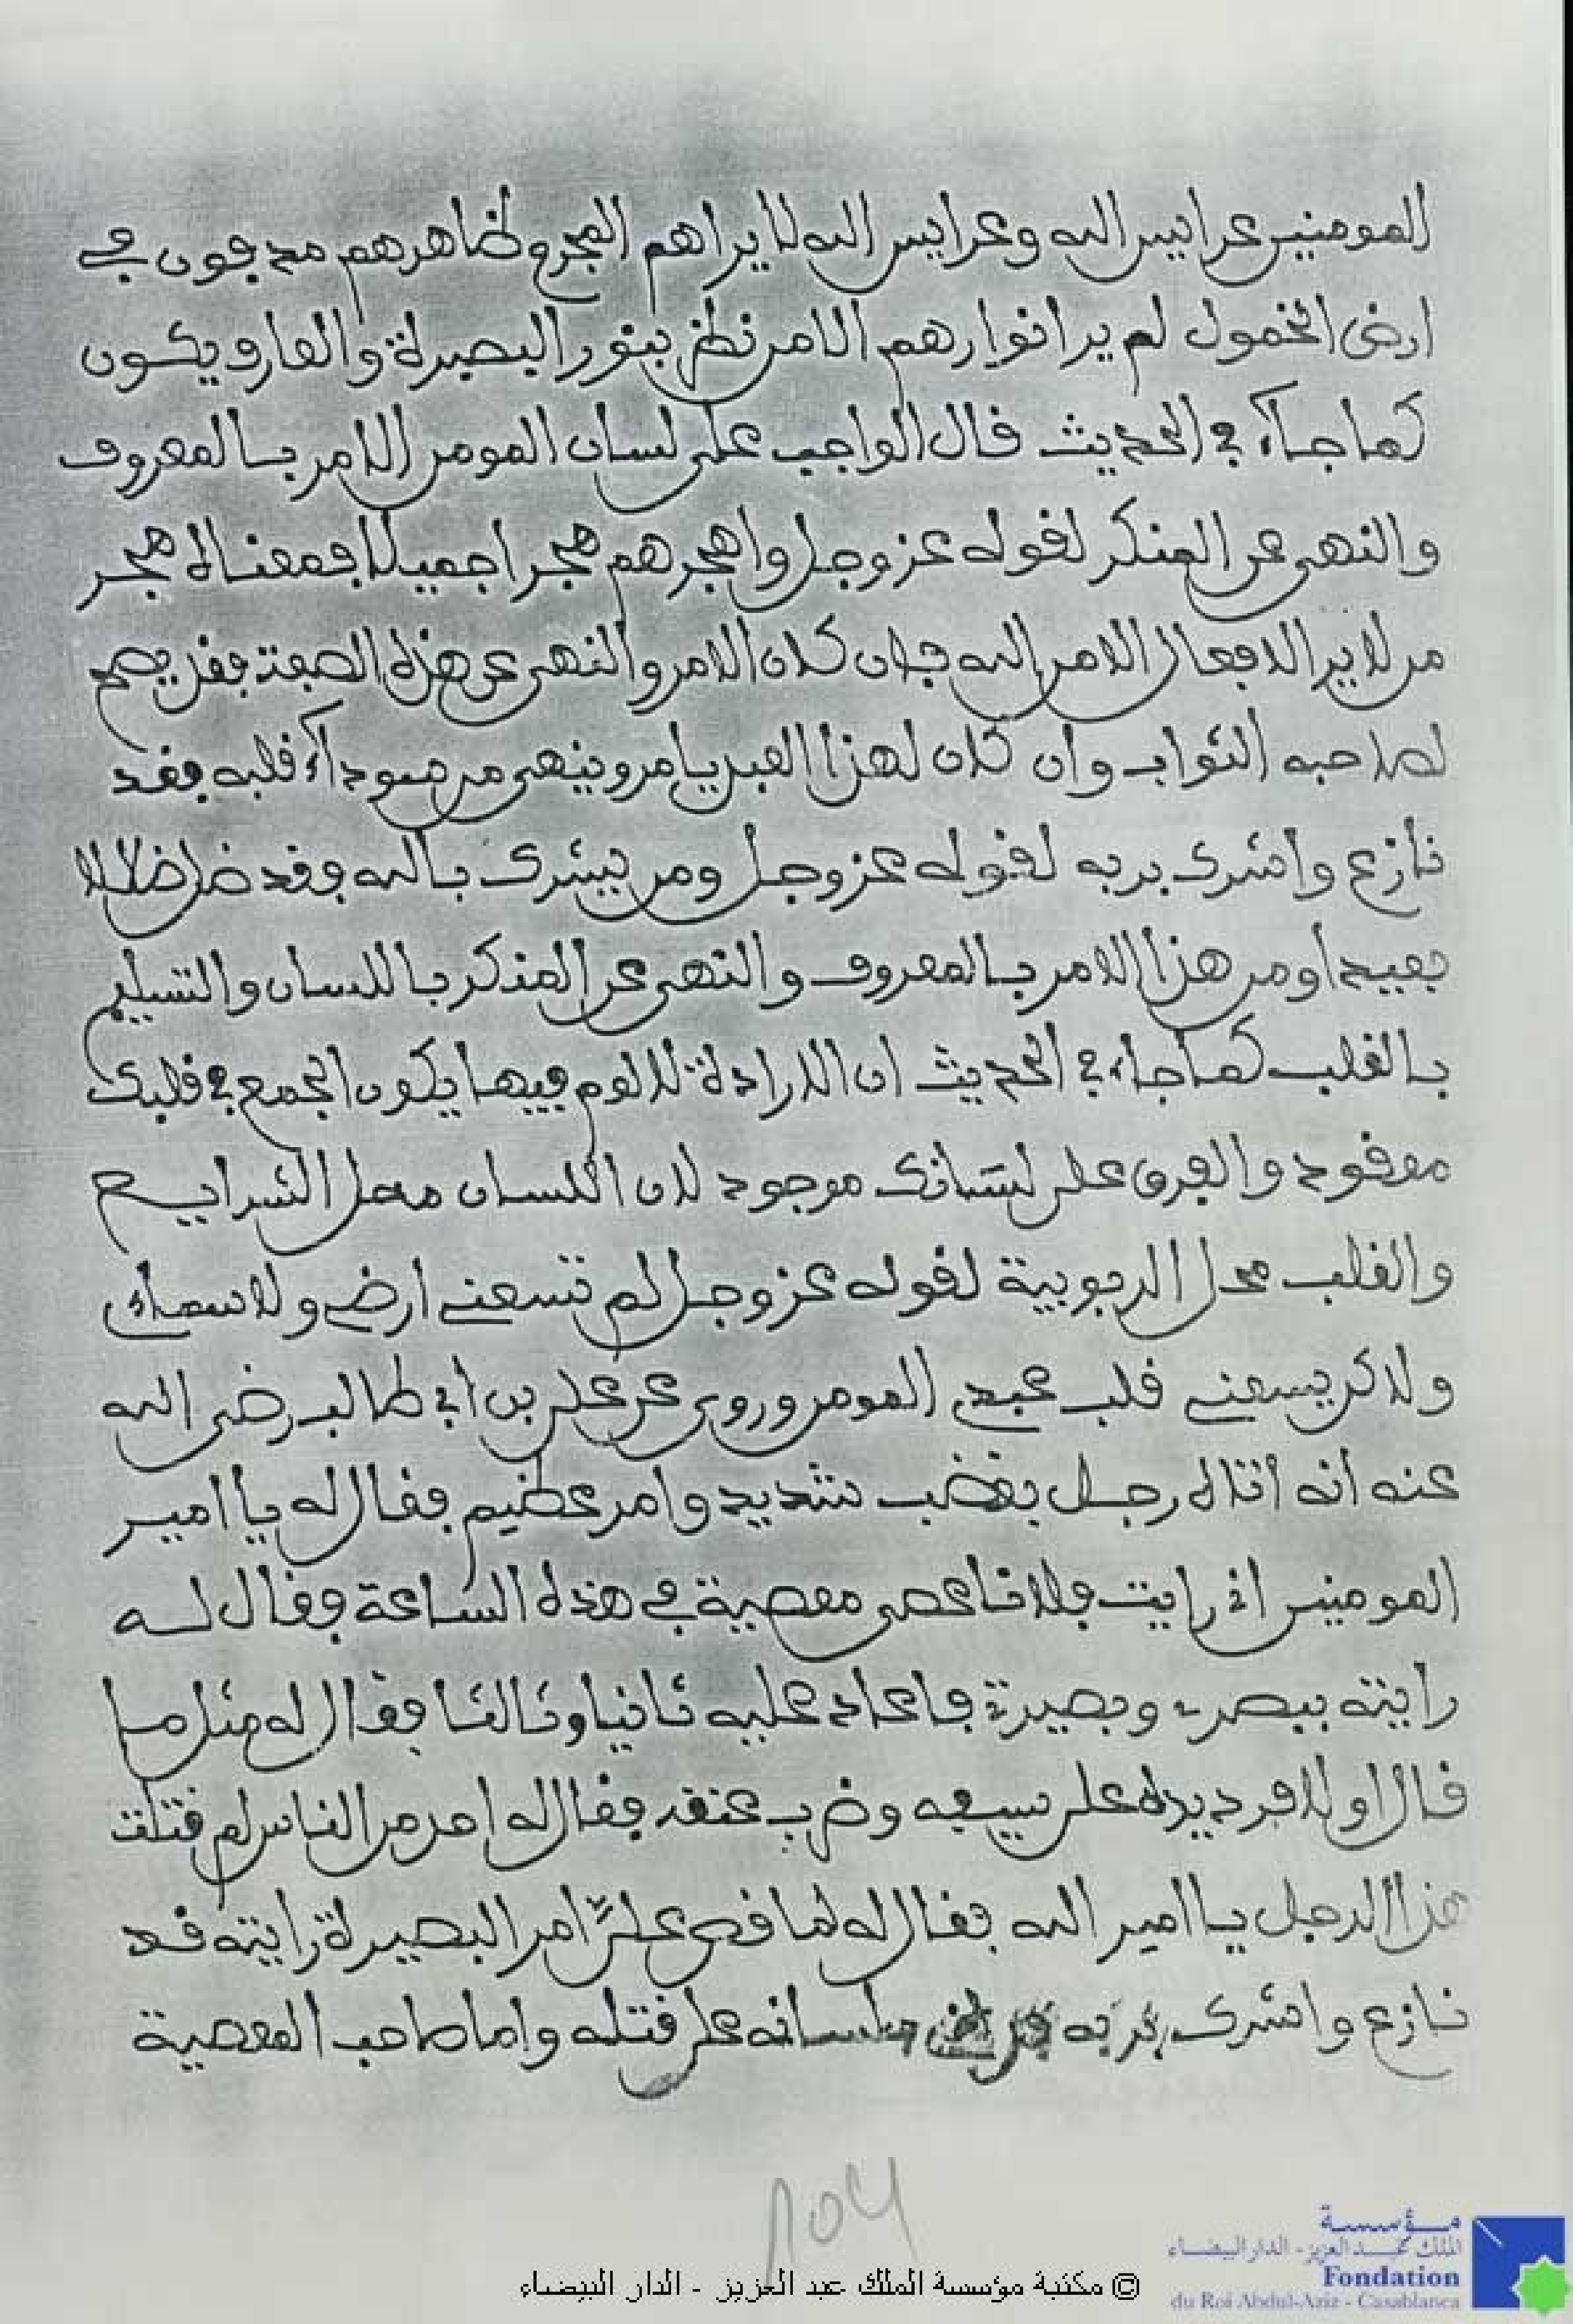 المومنين عرايس الله وعرايس الله لا يراهم المجرم وظاهرهم مدفون في
ارض الخمول لم ير انوارهم الا من نظر بنور البصيرة والعارف يكون
كما جاء في الحديث قال الواجب على لسان المومن الامر بالمعروف
والنهي عن المنكر لقوله عز وجل واهجرهم هجرا جميلا فمعناه هجر
من لا ير الافعال الا من الله فان كان الامر والنهي عن هذه الصفة فقد يصح
لصاحبه الثواب وان كان لهذا العبد يامر وينهى من سوداء قلبه فقد
نازع واشرك بربه لقوله عز وجل ومن يشرك بالله فقد ضل ضلالا
بعيدا ومن هذا الامر بالمعروف والنهي عن المنكر باللسان والتسليم
بالقلب كما جاء في الحديث ان الارادة لا لوم فيها يكون الجمع في قلبك
مفقود والفرق على لسانك موجود لان اللسان محل الشرايع
والقلب محل الربوبية لقوله عز وجل لم تسعني ارض ولا سماء
ولاكن يسعني قلب عبدي المومن وروي عن علي بن ابي طالب رضي الله
عنه انه اتاه رجل بغضب شديد وامر عظيم فقال له يا امير
المومنين اني رايت فلانا عصى معصية في هذه الساعة فقال له
رايته ببصر وبصيرة فاعاد عليه ثانيا وثالثا فقال له مثل ما
قال اولا فرد يده على سيفه وضرب عنقه فقال له احد من الناس لم قتلت
هذا الرجل يا امير الله فقال له لما قص علي امر البصيرة رايته قد
نازع واشرك بربه لسانه على قتله واما صاحب المعصية
104
© مكتبة مؤسسة الملك عبد العزيز - الدار البيضاء
مؤسسة
الملك عبد العزيز - الدار البيضاء
Fondation
du Roi Abdul-Aziz - Casablanca